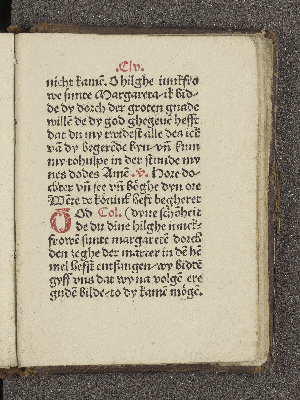 .Clv.
nicht kamē. O hilghe iunkfro
we sunte Margareta ik bid-
de dy dorch der groten gnade
willē de dy god ghegeuē hefft
dat du my twidest alle des ick
vā dy begerēde byn vn̄ kum
my to hulpe in der stunde my
nes dodes Amē .v. Hore do-
chter vn̄ see vn̄ bēghe dyn ore
Wēte de kōnink heft begheret
GOd Col. (dyne schōheit
de du dine hilghe iunck-
frowē sunte margaretē dorch
den zeghe der marter in dē hē
mel hefst entfangen wy biddē
gyff vns dat wy na volgē ere
gudē bilde to dy kamē mōgē.